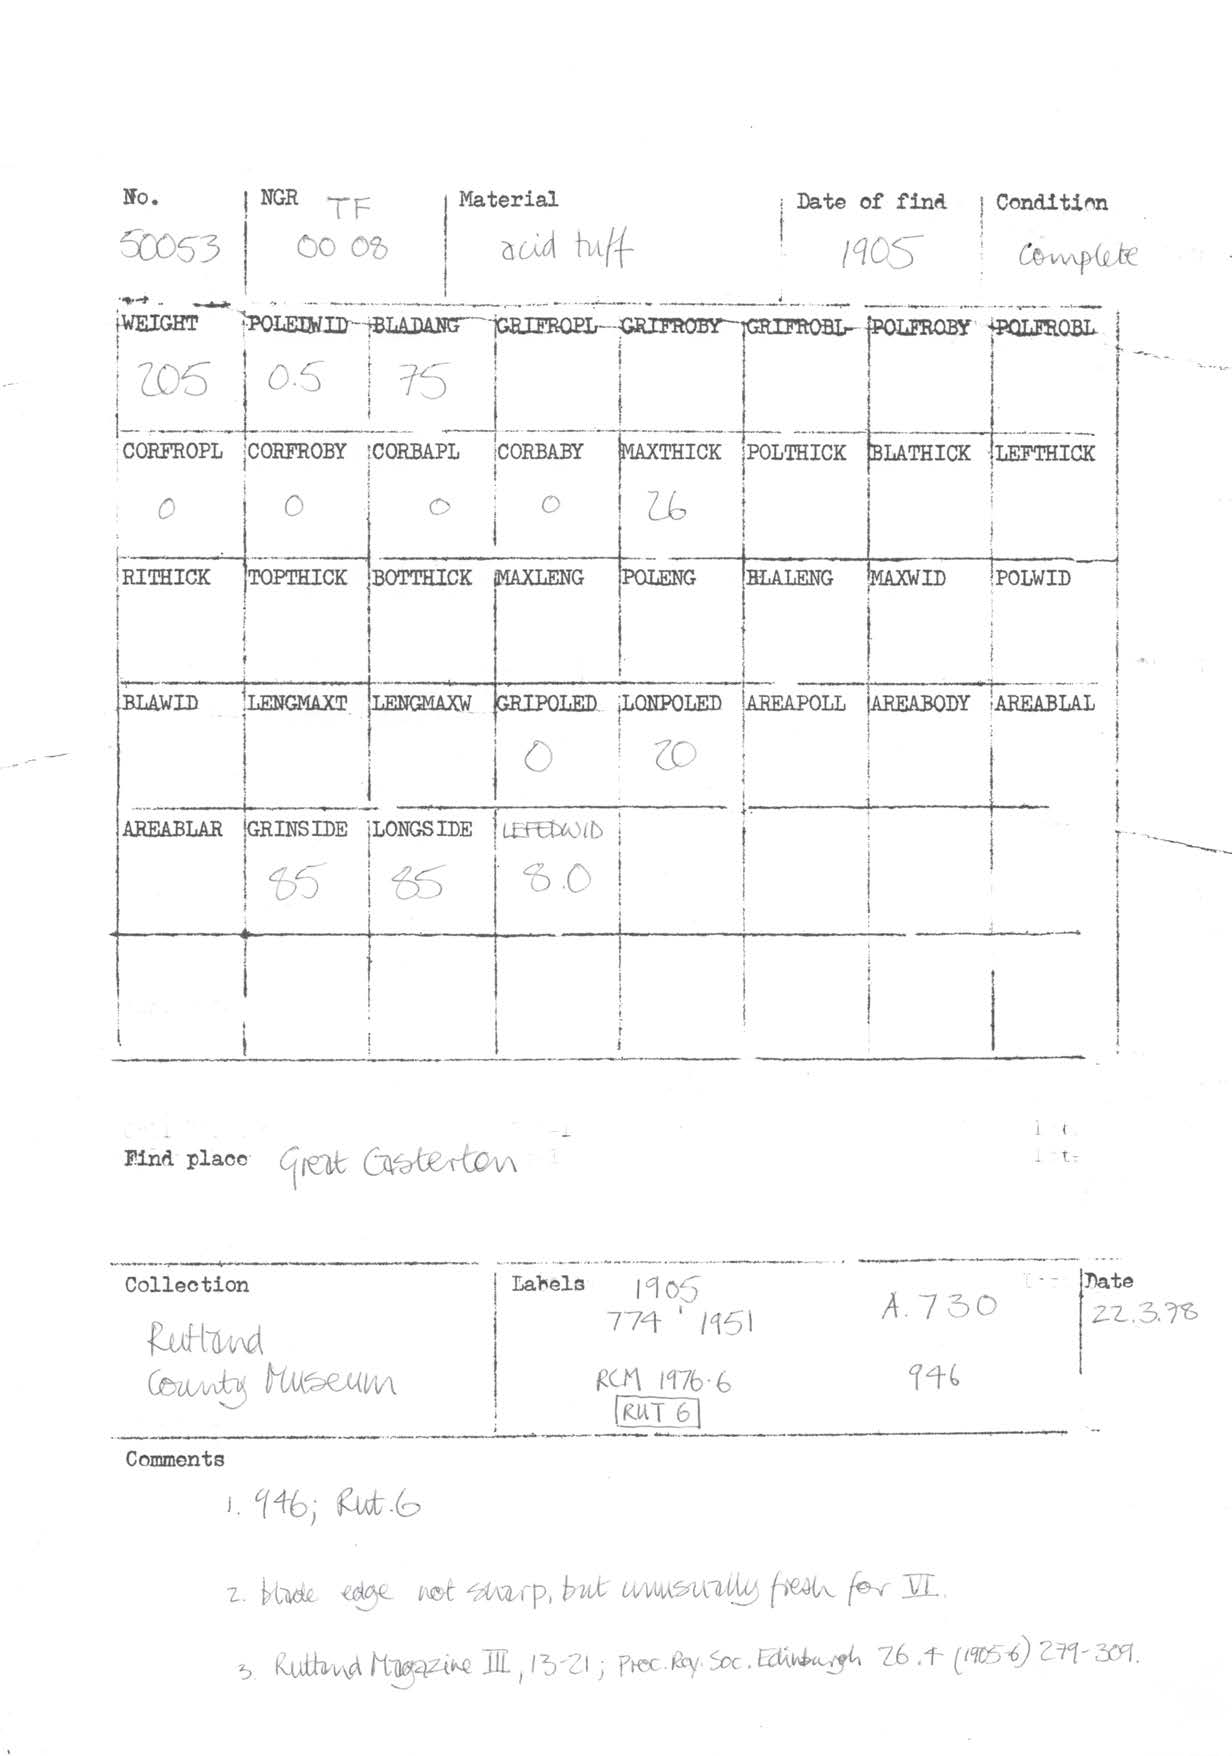 No. NGR TF Material Date of find Condition
50053 00 08 acid tuff 1905 complete
WEIGHT POLEDWID BLADANG GRIFROPL GRIFROBY GRIFROBL POLFROBY POLFROBL
205 0.5 75
CORFROPL CORFROBY CORBAPL CORBABY MAXTHICK POLTHICK BLATHICK LEFTHICK
0 0 0 0 26
RITHICK TOPTHICK BOTTHICK MAXLENG POLENG BLALENG MAXWID POLWID
BLAWID LENGMAXT LENGMAXW GRIPOLED LONPOLED AREAPOLL AREABODY AREABLAL
0 20
AREABLAR GRINSIDE LONGSIDE LEFEDWID
85 85 8.0
Find place Great Casterton
Collection Labels 1905 A.730 Date
774 ' 1951 22.3.78
Rutland
County Museum RCM 1976.6 946
RUT 6
Comments
1. 946; Rut.6
2. blade edge not sharp, but unusually fresh for VI.
3. Rutland Magazine III, 13-21; Proc. Roy. Soc. Edinburgh 26.4 (1905-6) 279-309.